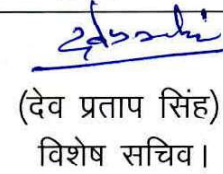 (देव प्रताप सिंह)
विशेष सचिव।